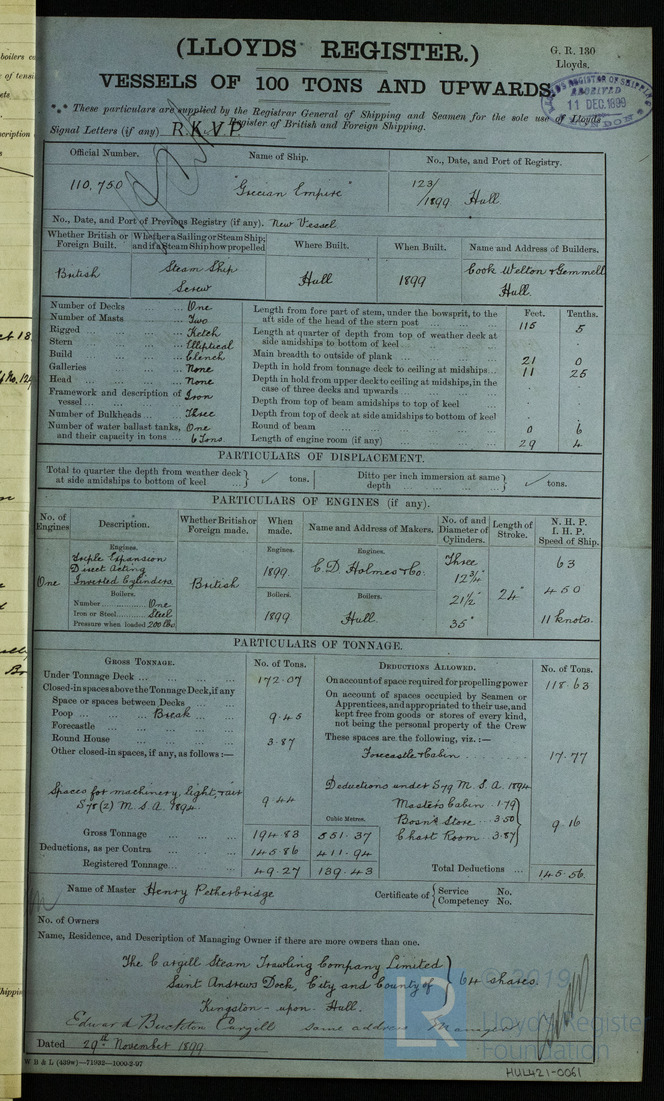 (LLOYDS REGISTER.)
G. R. 130
Lloyds.
VESSELS OF 100 TONS AND UPWARDS.
LLOYD'S REGISTER OF SHIPPING
11 DEC. 1899
LONDON
*⁎* These particulars are supplied by the Registrar General of Shipping and Seamen for the sole use of Lloyds
Register of British and Foreign Shipping.
Signal Letters (if any) R.K.V.P.
Official Number. Name of Ship. No., Date, and Port of Registry.
110,750 "Grecian Empire" 123/1899 Hull
No., Date, and Port of Previous Registry (if any). New Vessel
Whether British or Foreign Built. Whether a Sailing or Steam Ship; and if a Steam Ship how propelled Where Built. When Built. Name and Address of Builders.
British Steam Ship Screw Hull 1899 Cook Welton & Gemmell Hull.
Feet. Tenths.
Number of Decks ... One
Number of Masts ... Two
Rigged ... Ketch
Stern ... Elliptical
Build ... Clench
Galleries ... None
Head ... None
Framework and description of vessel ... Iron
Number of Bulkheads ... Three
Number of water ballast tanks, and their capacity in tons ... One 6 Tons
Length from fore part of stem, under the bowsprit, to the aft side of the head of the stern post ... 115 5
Length at quarter of depth from top of weather deck at side amidships to bottom of keel ...
Main breadth to outside of plank ... 21 0
Depth in hold from tonnage deck to ceiling at midships ... 11 25
Depth in hold from upper deck to ceiling at midships, in the case of three decks and upwards ...
Depth from top of beam amidships to top of keel
Depth from top of deck at side amidships to bottom of keel
Round of beam ... 0 6
Length of engine room (if any) ... 29 4
PARTICULARS OF DISPLACEMENT.
Total to quarter the depth from weather deck at side amidships to bottom of keel } ✓ tons. Ditto per inch immersion at same depth } ✓ tons.
PARTICULARS OF ENGINES (if any).
No. of Engines Description. Whether British or Foreign made. When made. Name and Address of Makers. No. of and Diameter of Cylinders. Length of Stroke. N. H. P. I. H. P. Speed of Ship.
Engines. Engines. Engines.
Triple Expansion
Direct Acting
One Inverted Cylinders British 1899 C. D. Holmes & Co. Three 12¾" 63
Boilers. Boilers. Boilers. 21½" 24" 450
Number ... One
Iron or Steel ... Steel
Pressure when loaded 200 lbs. 1899 Hull. 35" 11 knots.
PARTICULARS OF TONNAGE.
GROSS TONNAGE. No. of Tons. DEDUCTIONS ALLOWED. No. of Tons.
Under Tonnage Deck ... 172.07
Closed-in spaces above the Tonnage Deck, if any
Space or spaces between Decks ...
Poop ... Break ... 9.45
Forecastle ...
Round House ... 3.87
Other closed-in spaces, if any, as follows:—
Spaces for machinery, light, & air
S78(2) M.S.A. 1894. 9.44
Gross Tonnage ... 194.83 551.37
Deductions, as per Contra ... 145.86 411.94
Registered Tonnage ... 49.27 139.43
On account of space required for propelling power 118.63
On account of spaces occupied by Seamen or
Apprentices, and appropriated to their use, and
kept free from goods or stores of every kind,
not being the personal property of the Crew
These spaces are the following, viz.:—
Forecastle & Cabin 17.77
Deductions under S79 M.S.A. 1894
Masters Cabin 1.79
Cubic Metres.
Bosn's Store 3.50 9.16
Chart Room 3.87
Total Deductions ... 145.56
Name of Master Henry Petherbridge Certificate of { Service No. Competency No.
No. of Owners
Name, Residence, and Description of Managing Owner if there are more owners than one.
The Cargill Steam Trawling Company Limited
Saint Andrews Dock, City and County of } 64 shares
Kingston-upon-Hull.
Edward Buckton Cargill same address Manager
Dated 29th November 1899
W B & L (439w)—71992—1000-2-97
HUL421-0061
LR
© 2019
Lloyd's Register
Foundation